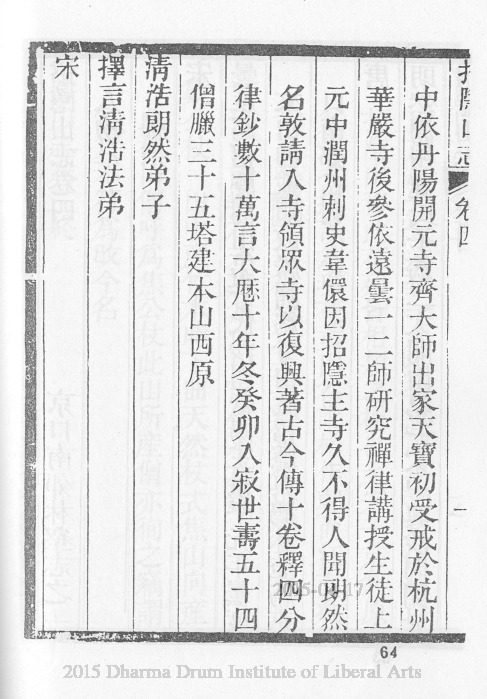 招隱山志 卷四 一
中依丹陽開元寺齊大師出家天寶初受戒於杭州
華嚴寺後參依遠曇一二師研究禪律講授生徒上
元中潤州刺史韋儇因招隱主寺久不得人聞朗然
名敦請入寺領眾寺以復興著古今傳十卷釋四分
律鈔數十萬言大曆十年冬癸卯入寂世壽五十四
僧臘三十五塔建本山西原
清浩朗然弟子
擇言清浩法弟
宋
64
2015 Dharma Drum Institute of Liberal Arts